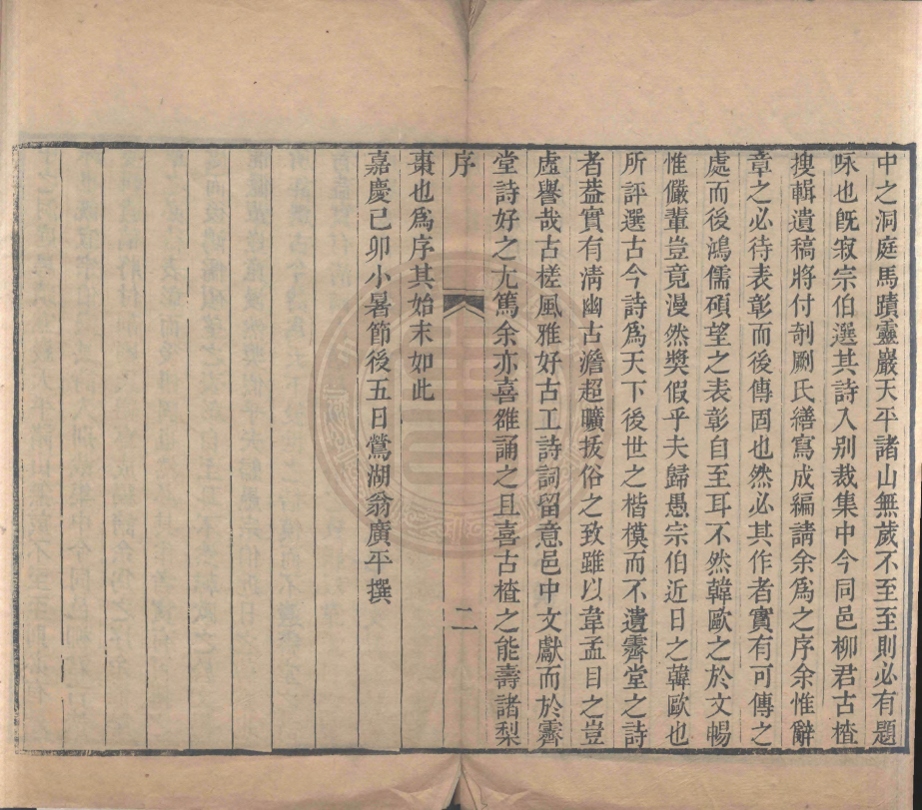 中之洞庭馬蹟靈巖天平諸山無歲不至至則必有題
咏也旣寂宗伯選其詩入别裁集中今同邑柳君古楂
搜輯遺稿將付剞劂氏繕寫成編請余爲之序余惟辭
章之必待表彰而後傳固也然必其作者實有可傳之
處而後鴻儒碩望之表彰自至耳不然韓歐之於文暢
惟儼輩豈竟漫然奬假乎夫歸愚宗伯近日之韓歐也
所評選古今詩爲天下後世之楷模而不遺霽堂之詩
者葢實有淸幽古澹超曠拔俗之致雖以韋孟目之豈
虛譽哉古槎風雅好古工詩詞留意邑中文獻而於霽
堂詩好之尤篤余亦喜雒誦之且喜古楂之能壽諸梨
序
二
棗也爲序其始末如此
嘉慶己卯小暑節後五日鶯湖翁廣平撰